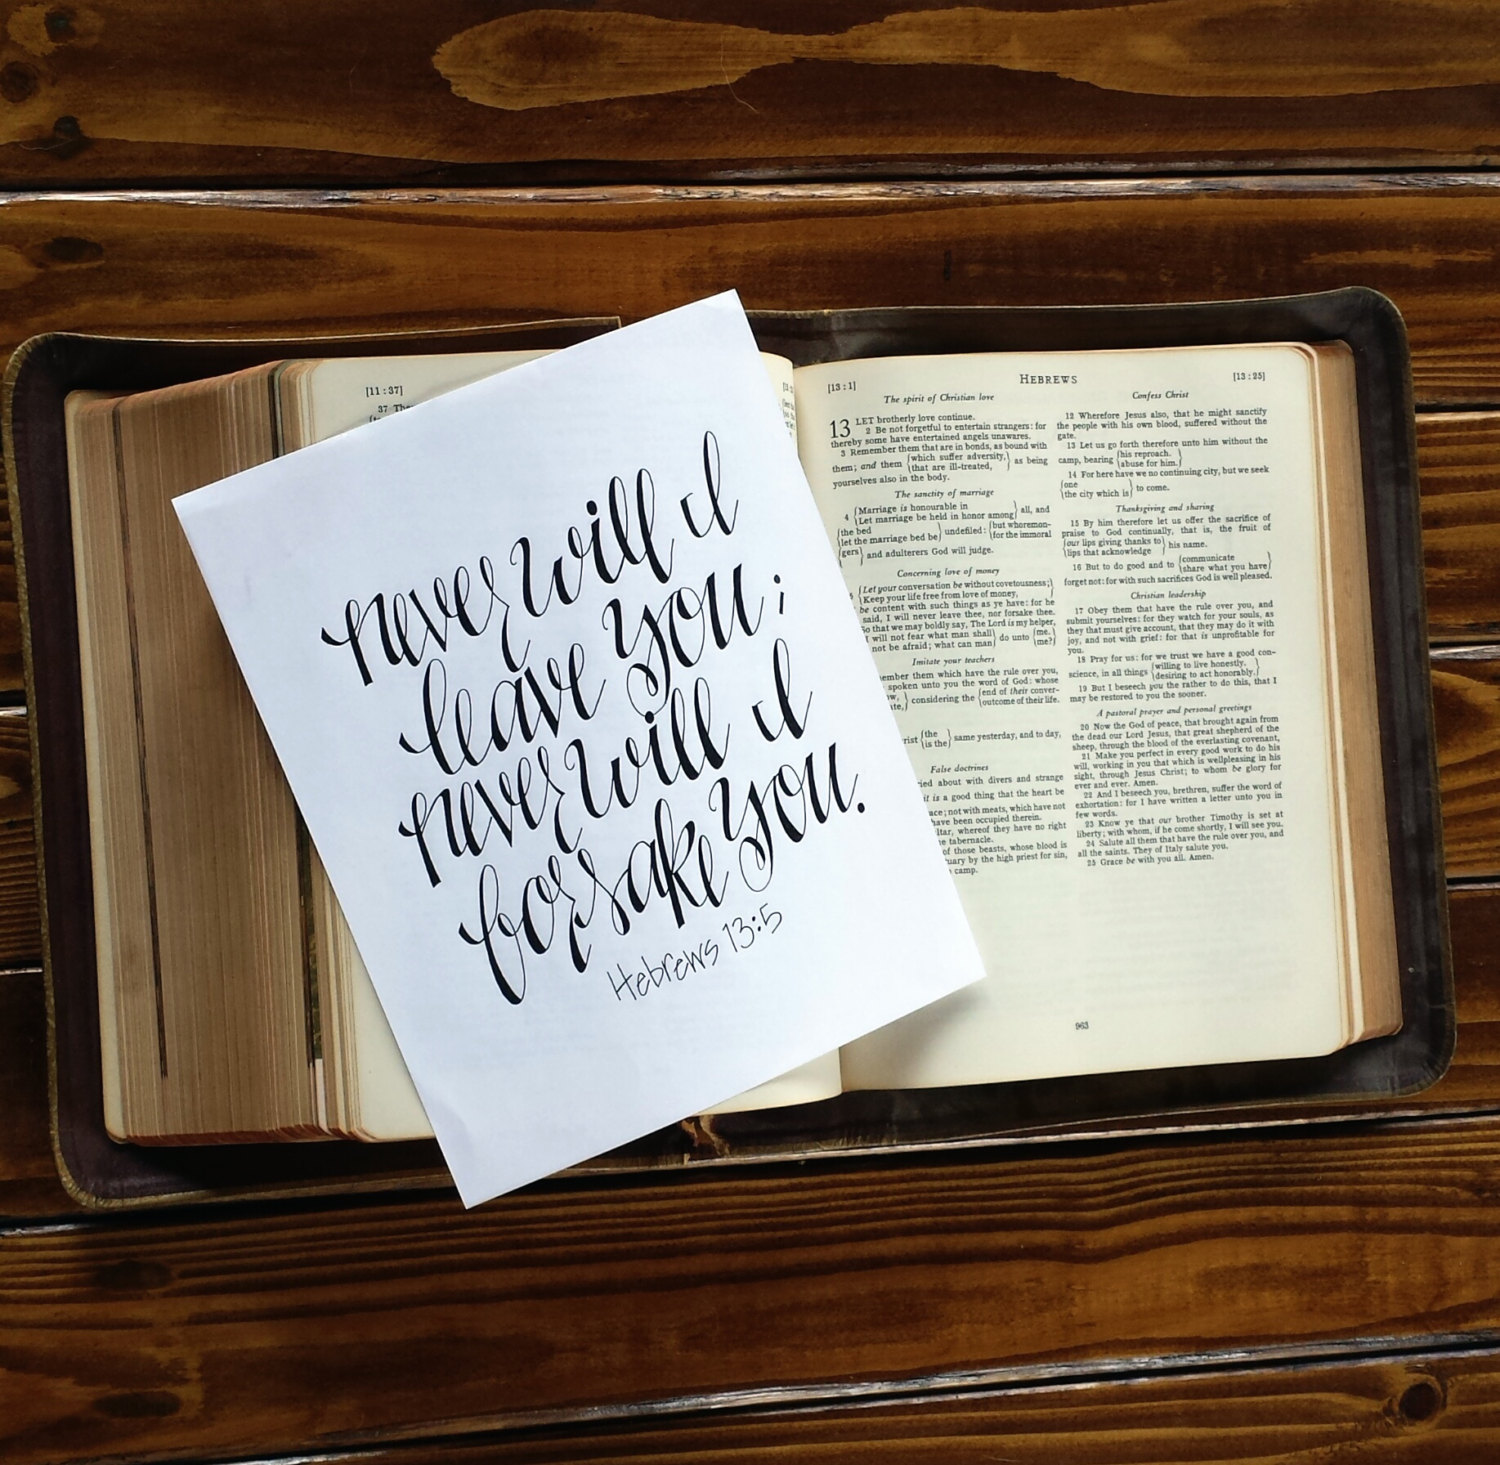 [11:37]
37
never will I
leave you;
never will I
forsake you.
Hebrews 13:5
[13:1]
HEBREWS
[13:25]
The spirit of Christian love
13 LET brotherly love continue.
2 Be not forgetful to entertain strangers: for
thereby some have entertained angels unawares.
3 Remember them that are in bonds, as bound with
them; and them {which suffer adversity,} as being
{that are ill-treated,}
yourselves also in the body.
The sanctity of marriage
4 {Marriage is honourable in} all, and
{Let marriage be held in honor among}
{the bed} undefiled: {but whoremon-
{let the marriage bed be} {for the immoral
gers} and adulterers God will judge.
Concerning love of money
{Let your conversation be without covetousness;}
{Keep your life free from love of money,}
be content with such things as ye have: for he
said, I will never leave thee, nor forsake thee.
So that we may boldly say, The Lord is my helper,
I will not fear what man shall} do unto {me.
not be afraid; what can man} {me?}
Imitate your teachers
them which have the rule over you,
spoken unto you the word of God: whose
considering the {end of their conver-
{outcome of their life.
{the} same yesterday, and to day,
{is the}
False doctrines
about with divers and strange
it is a good thing that the heart be
not with meats, which have not
have been occupied therein.
whereof they have no right
tabernacle.
of those beasts, whose blood is
by the high priest for sin,
camp.
Confess Christ
12 Wherefore Jesus also, that he might sanctify
the people with his own blood, suffered without the
gate.
13 Let us go forth therefore unto him without the
camp, bearing {his reproach.}
{abuse for him.}
14 For here have we no continuing city, but we seek
{one} to come.
{the city which is}
Thanksgiving and sharing
15 By him therefore let us offer the sacrifice of
praise to God continually, that is, the fruit of
{our lips giving thanks to} his name.
{lips that acknowledge}
16 But to do good and to {communicate}
{share what you have}
forget not: for with such sacrifices God is well pleased.
Christian leadership
17 Obey them that have the rule over you, and
submit yourselves: for they watch for your souls, as
they that must give account, that they may do it with
joy, and not with grief: for that is unprofitable for
you.
18 Pray for us: for we trust we have a good con-
science, in all things {willing to live honestly.}
{desiring to act honorably.}
19 But I beseech you the rather to do this, that I
may be restored to you the sooner.
A pastoral prayer and personal greetings
20 Now the God of peace, that brought again from
the dead our Lord Jesus, that great shepherd of the
sheep, through the blood of the everlasting covenant,
21 Make you perfect in every good work to do his
will, working in you that which is wellpleasing in his
sight, through Jesus Christ; to whom be glory for
ever and ever. Amen.
22 And I beseech you, brethren, suffer the word of
exhortation: for I have written a letter unto you in
few words.
23 Know ye that our brother Timothy is set at
liberty; with whom, if he come shortly, I will see you.
24 Salute all them that have the rule over you, and
all the saints. They of Italy salute you.
25 Grace be with you all. Amen.
963